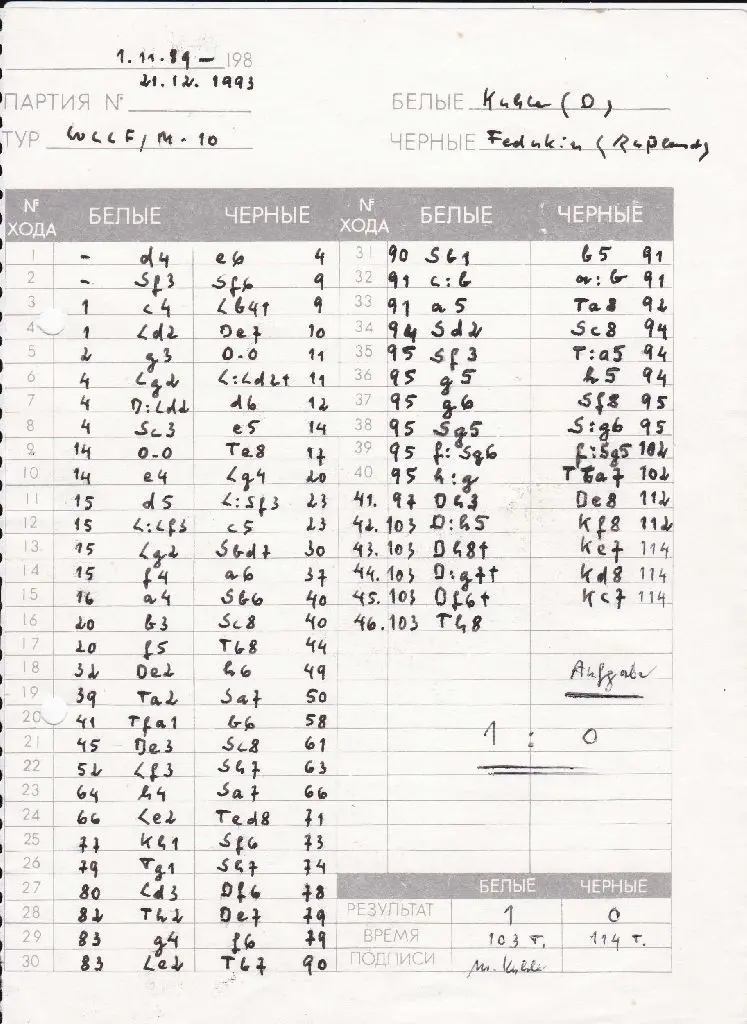 1.11.89 – 198
21.12.1993
ПАРТИЯ №
БЕЛЫЕ Kuhler (D)
ТУР WCCF/M-10
ЧЕРНЫЕ Fedukin (Rußland)
№ ХОДА БЕЛЫЕ ЧЕРНЫЕ № ХОДА БЕЛЫЕ ЧЕРНЫЕ
1 - d4 e6 4 31 90 Sb1 b5 91
2 - Sf3 Sf6 9 32 91 c:b a:b 91
3 1 c4 Lb4† 9 33 91 a5 Ta8 92
4 1 Ld2 De7 10 34 94 Sd2 Sc8 94
5 2 g3 0-0 11 35 95 Sf3 T:a5 94
6 4 Lg2 L:Ld2† 11 36 95 g5 h5 94
7 4 D:Ld2 d6 12 37 95 g6 Sf8 95
8 4 Sc3 e5 14 38 95 Sg5 S:g6 95
9 14 0-0 Te8 17 39 95 f:Sg6 f:Sg5 102
10 14 e4 Lg4 20 40 95 h:g Tba7 102
11 15 d5 L:Sf3 23 41. 97 Dh3 De8 112
12 15 L:Lf3 c5 23 42. 103 D:h5 Kf8 112
13 15 Lg2 Sbd7 30 43. 103 Dh8† Ke7 114
14 15 f4 a6 37 44. 103 D:g7† Kd8 114
15 16 a4 Sb6 40 45. 103 Df6† Kc7 114
16 20 b3 Sc8 40 46. 103 Th8
17 20 f5 Tb8 44
18 32 De2 h6 49 Aufgabe
19 39 Ta2 Sa7 50
20 41 Tfa1 b6 58
21 45 De3 Sc8 61 1 : 0
22 52 Lf3 Sh7 63
23 64 h4 Sa7 66
24 66 Le2 Ted8 71
25 77 Kh1 Sf6 73
26 79 Tg1 Sh7 74
27 80 Ld3 Df6 78 БЕЛЫЕ ЧЕРНЫЕ
28 82 Th2 De7 79 РЕЗУЛЬТАТ 1 0
29 83 g4 f6 79 ВРЕМЯ 103 т. 114 т.
30 83 Le2 Tb7 90 ПОДПИСИ M. Kuhler